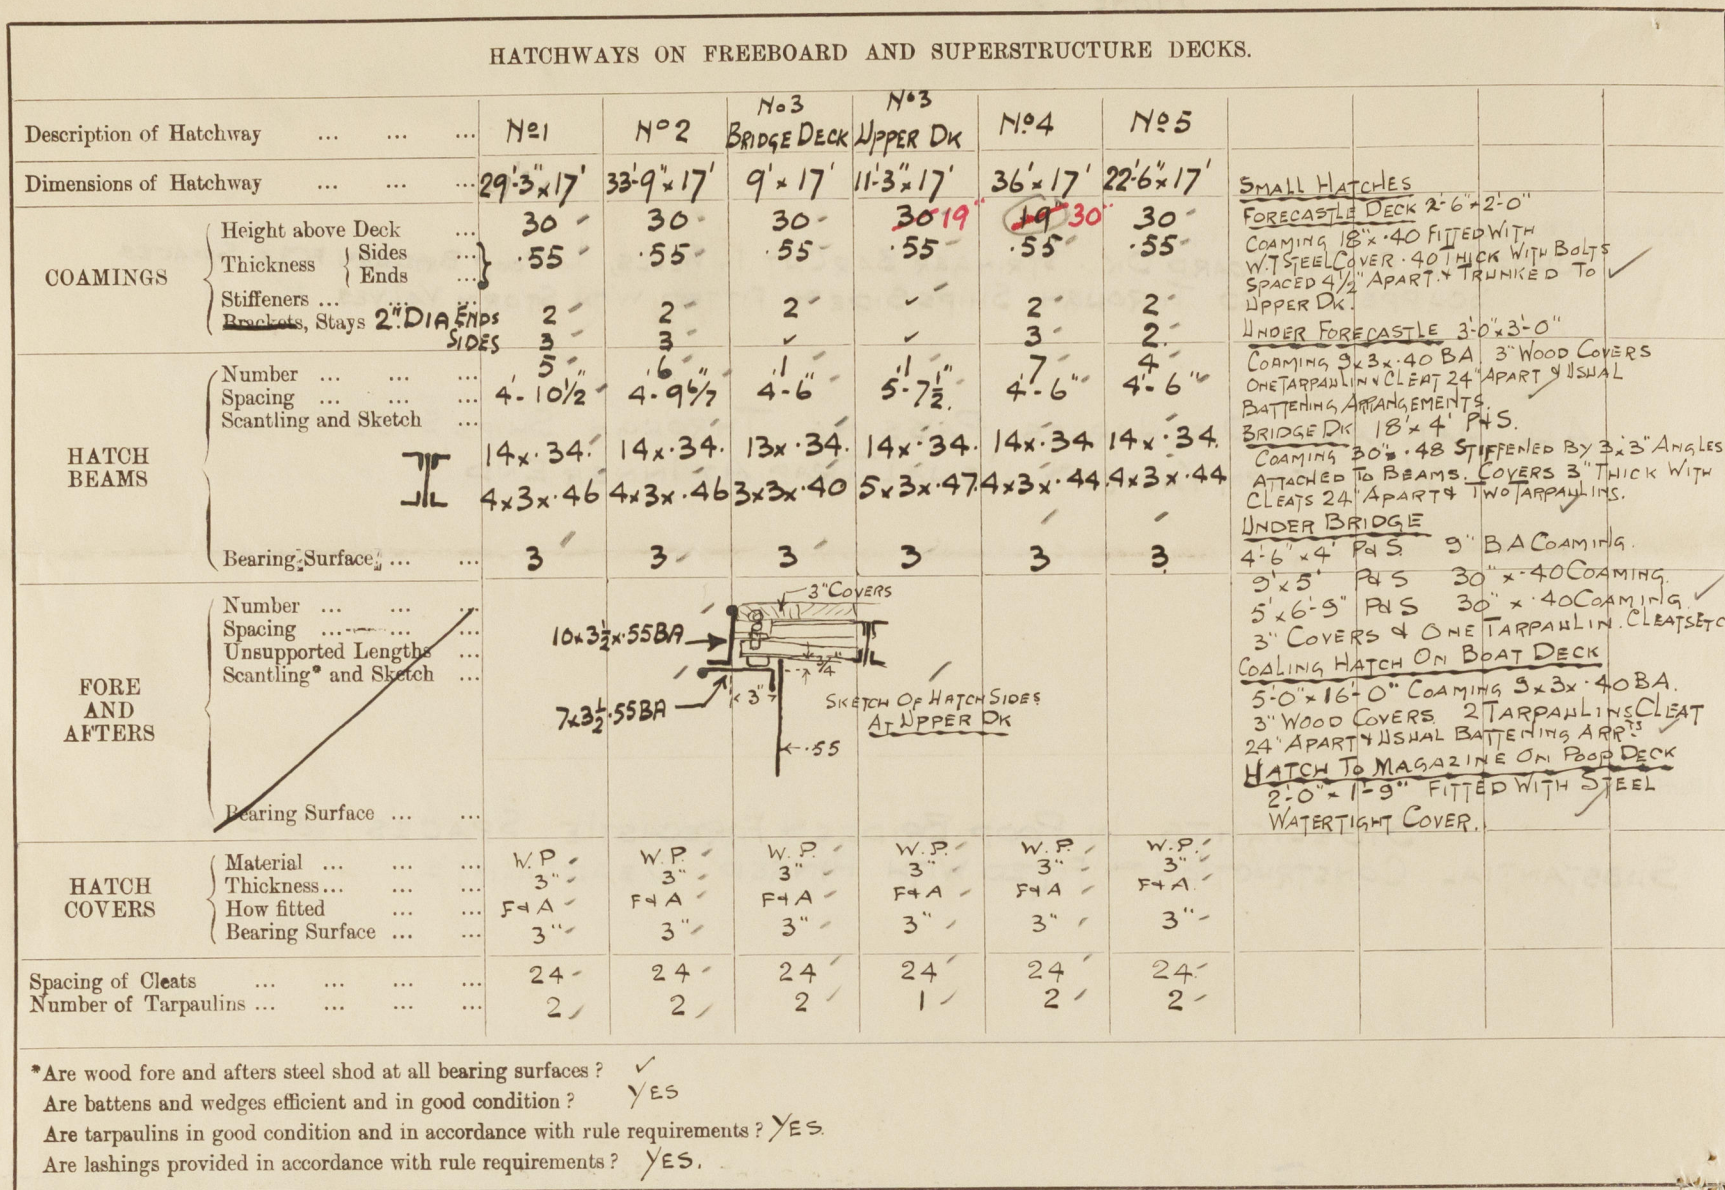 HATCHWAYS ON FREEBOARD AND SUPERSTRUCTURE DECKS.
Description of Hatchway ... ... ... No1 No2 No3 BRIDGE DECK No3 UPPER DK No4 No5
Dimensions of Hatchway ... ... ... 29'-3"x17' 33'-9"x17' 9'x17' 11'-3"x17' 36'x17' 22'-6"x17'
COAMINGS
Height above Deck ... 30 30 30 30 19" 19" 30" 30
Thickness { Sides ... Ends ... } .55 .55 .55 .55 .55 .55
Stiffeners ... ... ...
Brackets, Stays 2" DIA ENDS 2 2 2 ✓ 2 2
SIDES 3 3 ✓ ✓ 3 2
HATCH BEAMS
Number ... ... ... 5 6 1 1 7 4
Spacing ... ... ... 4-10½" 4-9 6/7" 4-6" 5-7½" 4'-6" 4'-6"
Scantling and Sketch ...
14x.34 14x.34 13x.34 14x.34 14x.34 14x.34
4x3x.46 4x3x.46 3x3x.40 5x3x.47 4x3x.44 4x3x.44
Bearing Surface ... ... 3 3 3 3 3 3
FORE AND AFTERS
Number ... ... ...
Spacing ... ... ...
Unsupported Lengths ...
Scantling* and Sketch ...
Bearing Surface ... ...
3" COVERS
10x3½x.55BA
¾"
3"
7x3½.55BA
.55
SKETCH OF HATCH SIDES
AT UPPER DK
HATCH COVERS
Material ... ... ... W.P. W.P. W.P. W.P. W.P. W.P.
Thickness... ... ... 3" 3" 3" 3" 3" 3"
How fitted ... ... F&A F&A F&A F&A F&A F&A
Bearing Surface ... ... 3" 3" 3" 3" 3" 3"
Spacing of Cleats ... ... ... ... 24 24 24 24 24 24
Number of Tarpaulins ... ... ... ... 2 2 2 1 2 2
SMALL HATCHES
FORECASTLE DECK 2'-6"x2'-0"
COAMING 18"x.40 FITTED WITH
W.T STEEL COVER .40 THICK WITH BOLTS
SPACED 4½" APART. & TRUNKED TO
UPPER DK.
UNDER FORECASTLE 3'-0"x3'-0"
COAMING 9x3x.40 BA. 3" WOOD COVERS
ONE TARPAULIN & CLEAT 24" APART & USUAL
BATTENING ARRANGEMENTS.
BRIDGE DK 18'x4' P&S.
COAMING 30"x.48 STIFFENED BY 3x3" ANGLES
ATTACHED TO BEAMS. COVERS 3" THICK WITH
CLEATS 24" APART & TWO TARPAULINS.
UNDER BRIDGE
4'-6"x4' P&S 9" BA COAMING.
9'x5' P&S 30"x.40 COAMING.
5'x6'-9" P&S 30"x.40 COAMING.
3" COVERS & ONE TARPAULIN. CLEATS ETC
COALING HATCH ON BOAT DECK
5'-0"x16'-0" COAMING 9x3x.40 BA.
3" WOOD COVERS 2 TARPAULINS CLEAT
24" APART & USUAL BATTENING ARRTS
HATCH TO MAGAZINE ON POOP DECK
2'-0"x1'-9" FITTED WITH STEEL
WATERTIGHT COVER.
*Are wood fore and afters steel shod at all bearing surfaces? ✓
Are battens and wedges efficient and in good condition? YES
Are tarpaulins in good condition and in accordance with rule requirements? YES.
Are lashings provided in accordance with rule requirements? YES.